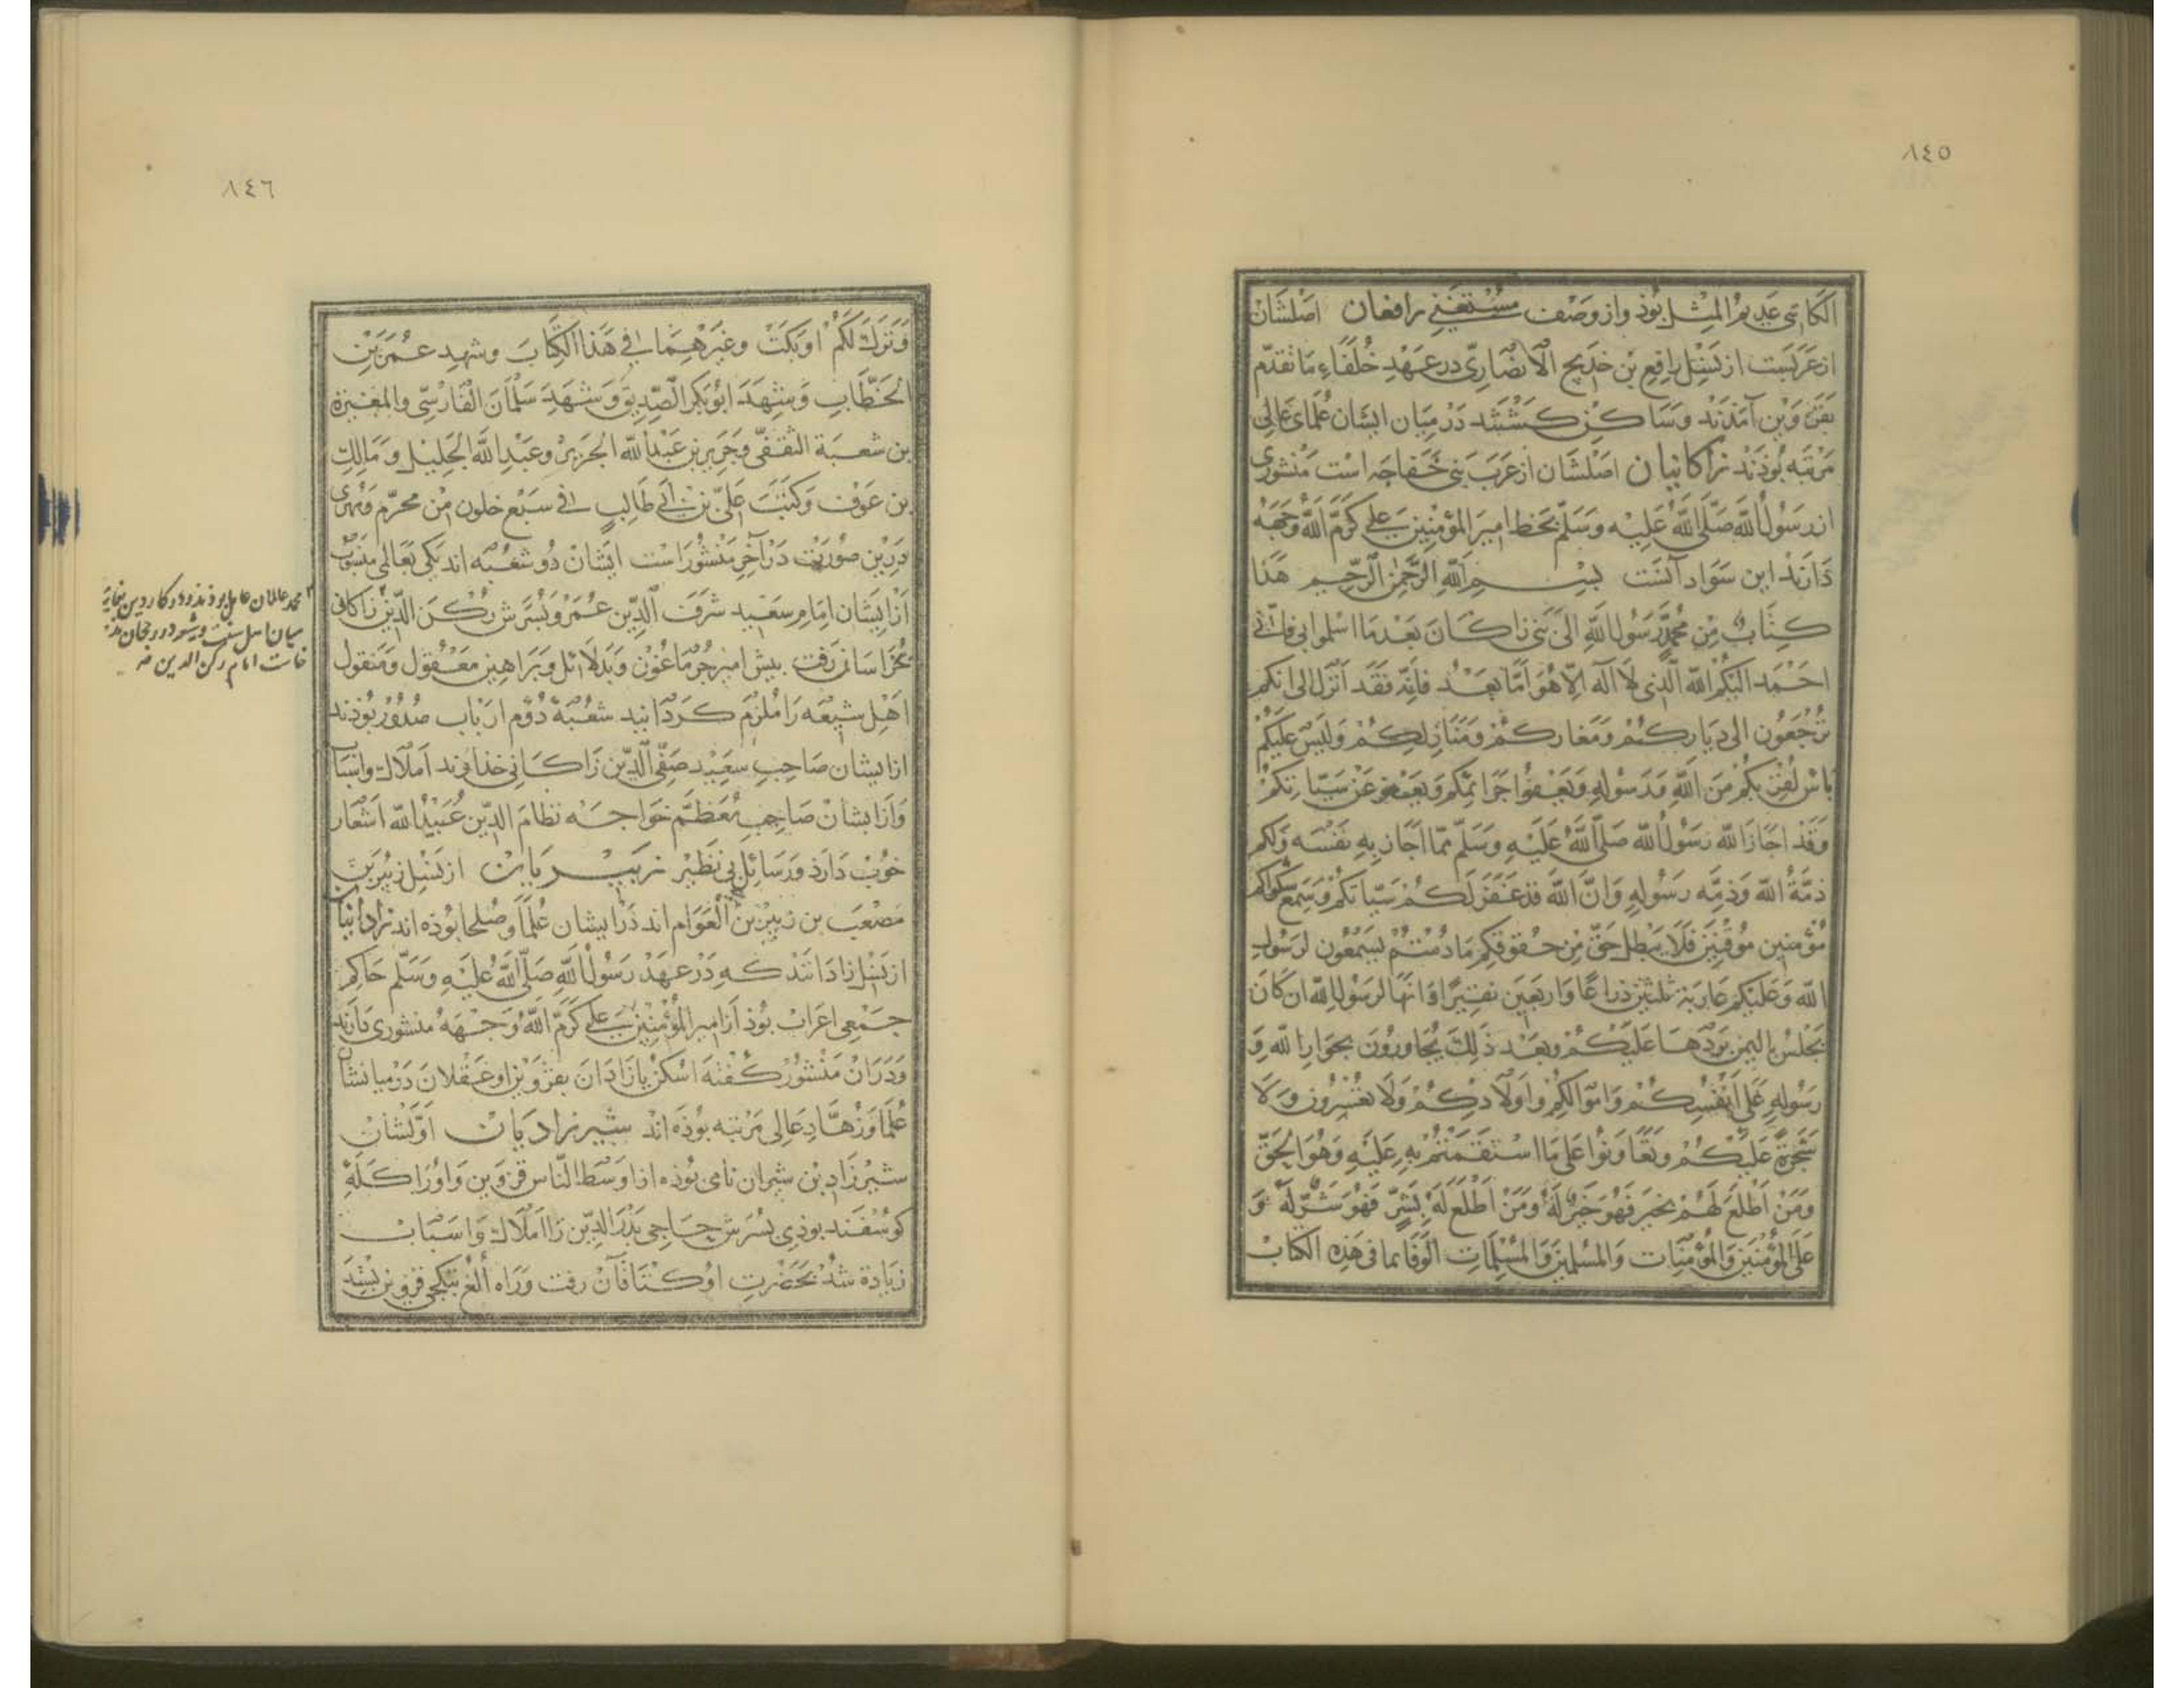 ٨٤٥
الکاتبی عدیم المثل بوذ و از وصف مستغنی رافعان اصلشان
از عربست از نسل رافع بن خدیج الانصاری در عهد خلفاء ما تقدم
بقزوین آمذند و ساکن کشتند در میان ایشان علمای عالی
مرتبه بوذند زاکانیان اصلشان از عرب بنی خفاجه است منشوری
از رسول الله صلی الله علیه وسلم بخط امیر المؤمنین علی کرم الله وجهه
دارند این سواد آنست بسم الله الرحمن الرحیم هذا
کتاب من محمد رسول الله الی بنی زاکان بعد ما اسلموا بی فانی
احمد الیکم الله الذی لا اله الا هو اما بعد فانه فقد انزل الی انکم
ترجعون الی دیارکم ومغارکم ومنازلکم ولیس علیکم
باس لقربکم من الله ورسوله ویعفوا جرائمکم ویعفو عن سیاتکم
وقد اجاز الله رسول الله صلی الله علیه وسلم مما اجاز به نفسه ولکم
ذمة الله وذمه رسوله وان الله قد غفر لکم سیاتکم وسمع شکواکم
مؤمنین موقنین فلا یبطل حق من حقوقکم ما دمتم لسمعون لرسول
الله وعلیکم عاریة ثلثین ذراعا واربعین انها لرسول الله ان کان
بجلس بالیمن یودها علیکم وبعد ذلک یجاورون بجوار الله و
رسوله علی انفسکم واموالکم واولادکم ولا تعسرون ولا
علیکم وتعاونوا علی ما استقمتم به علیه وهو الحق
ومن اطلع لهم بخیر فهو خیر له ومن اطلع له بشر فهو شر له و
علی المؤمنین والمؤمنات والمسلمین والمسلمات الوفا بما فی هذه الکتاب
٨٤٦
وترک لکم اوبکت وغیرهما فی هذا الکتاب وشهد عمر بن
الخطاب وشهد ابوبکر الصدیق وشهد سلمان الفارسی والمغیرة
بن شعبة الثقفی وجریر بن عبد الله وعبد الله الجلیل ومالک
بن عوف وکتب علی بن ابی طالب فی سبع خلون من محرم ومهری
درین صورت در آخر منشور است ایشان دو شعبه اند یکی بعالی منسوب
از ایشان امام سعید شرف الدین عمر وپسرش رکن الدین زاکانی
بخراسان رفت پیش امیر جرماغون وبدلائل وبراهین معقول ومنقول
اهل شیعه را ملزم کردانید شعبه دوم ارباب صدور بوذند
از ایشان صاحب سعید صفی الدین زاکانی خداوند املاک واسباب
واز ایشان صاحب معظم خواجه نظام الدین عبید الله اشعار
خوب دارد ورسائل بی نظیر زبیریان از نسل زبیر بن
مصعب بن زبیر بن العوام اند در ایشان علما وصلحا بوذه اند زادانیان
از نسل زادانند که در عهد رسول الله صلی الله علیه وسلم حاکم
جمعی اعراب بوذ از امیر المؤمنین علی کرم الله وجهه منشوری دارند
ودر آن منشور کفته اسکن یا زادان بقزوین او عسقلان در میانشان
علما وزهاد عالی مرتبه بوذه اند شیرزادیان اولشان
شیرزاد بن شیران نامی بوذه از اوسط الناس قزوین واورا کله
کوسفند بوذی پسرش حاجی بدر الدین را املاک واسباب
زیادة شد بحضرت اوکتاقاآن رفت وراه الغ بتکجی قزوین بستد
محمد عالمان عامل بوذند و در کار دین بغایة
میان اهل سنت و در رجحان مذهب
امام رکن الدین